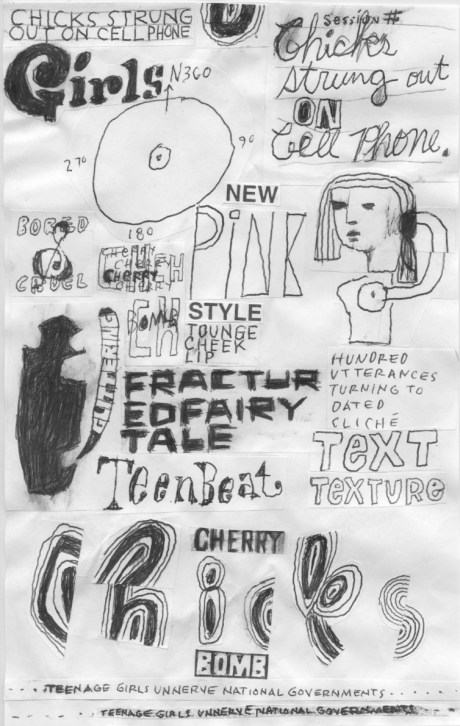 CHICKS STRUNG
OUT ON CELL PHONE
Session #
Chicks
strung out
ON
Cell Phone.
Girls
N360
90
270
180
NEW
PiNK
BORED
CRUEL
CHERRY
CHERRY
CHERRY
CHERRY
BOMB
STYLE
TOUNGE
CHEEK
LIP
FRACTUR
EDFAIRY
TALE
TeenBeat
HUNDRED
UTTERANCES
TURNING TO
DATED
CLICHÉ
TEXT
TEXTURe
CHERRY
Chicks
BOMB
....TEENAGE GIRLS UNNERVE NATIONAL GOVERNMENTS......
....TEENAGE GIRLS UNNERVE NATIONAL GOVERNMENTS......